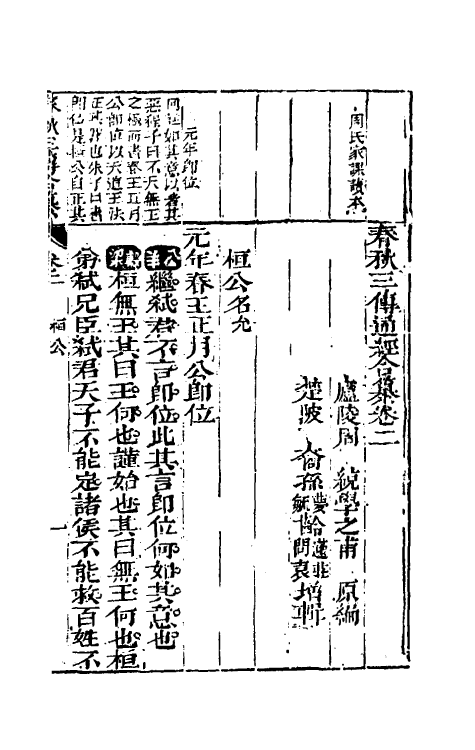 周氏家課讀本
春秋三傳通經合纂卷二
廬陵周 統學之甫 原編
楚陂 裔孫 增訂
桓公名允
元年春王正月公即位
公羊繼弑君不言即位此其言即位何如其意也
穀梁桓無王其曰王何也謹始也其曰無王何也桓
弟弑兄臣弑君天子不能定諸侯不能救百姓不
元年即位
何注如其意以著其
惡程子曰不天無王
之極而書春王正月
公即位以天道王法
正其罪也朱子曰書
即位是桓公自正其
春秋三傳合纂
卷二 桓公 一